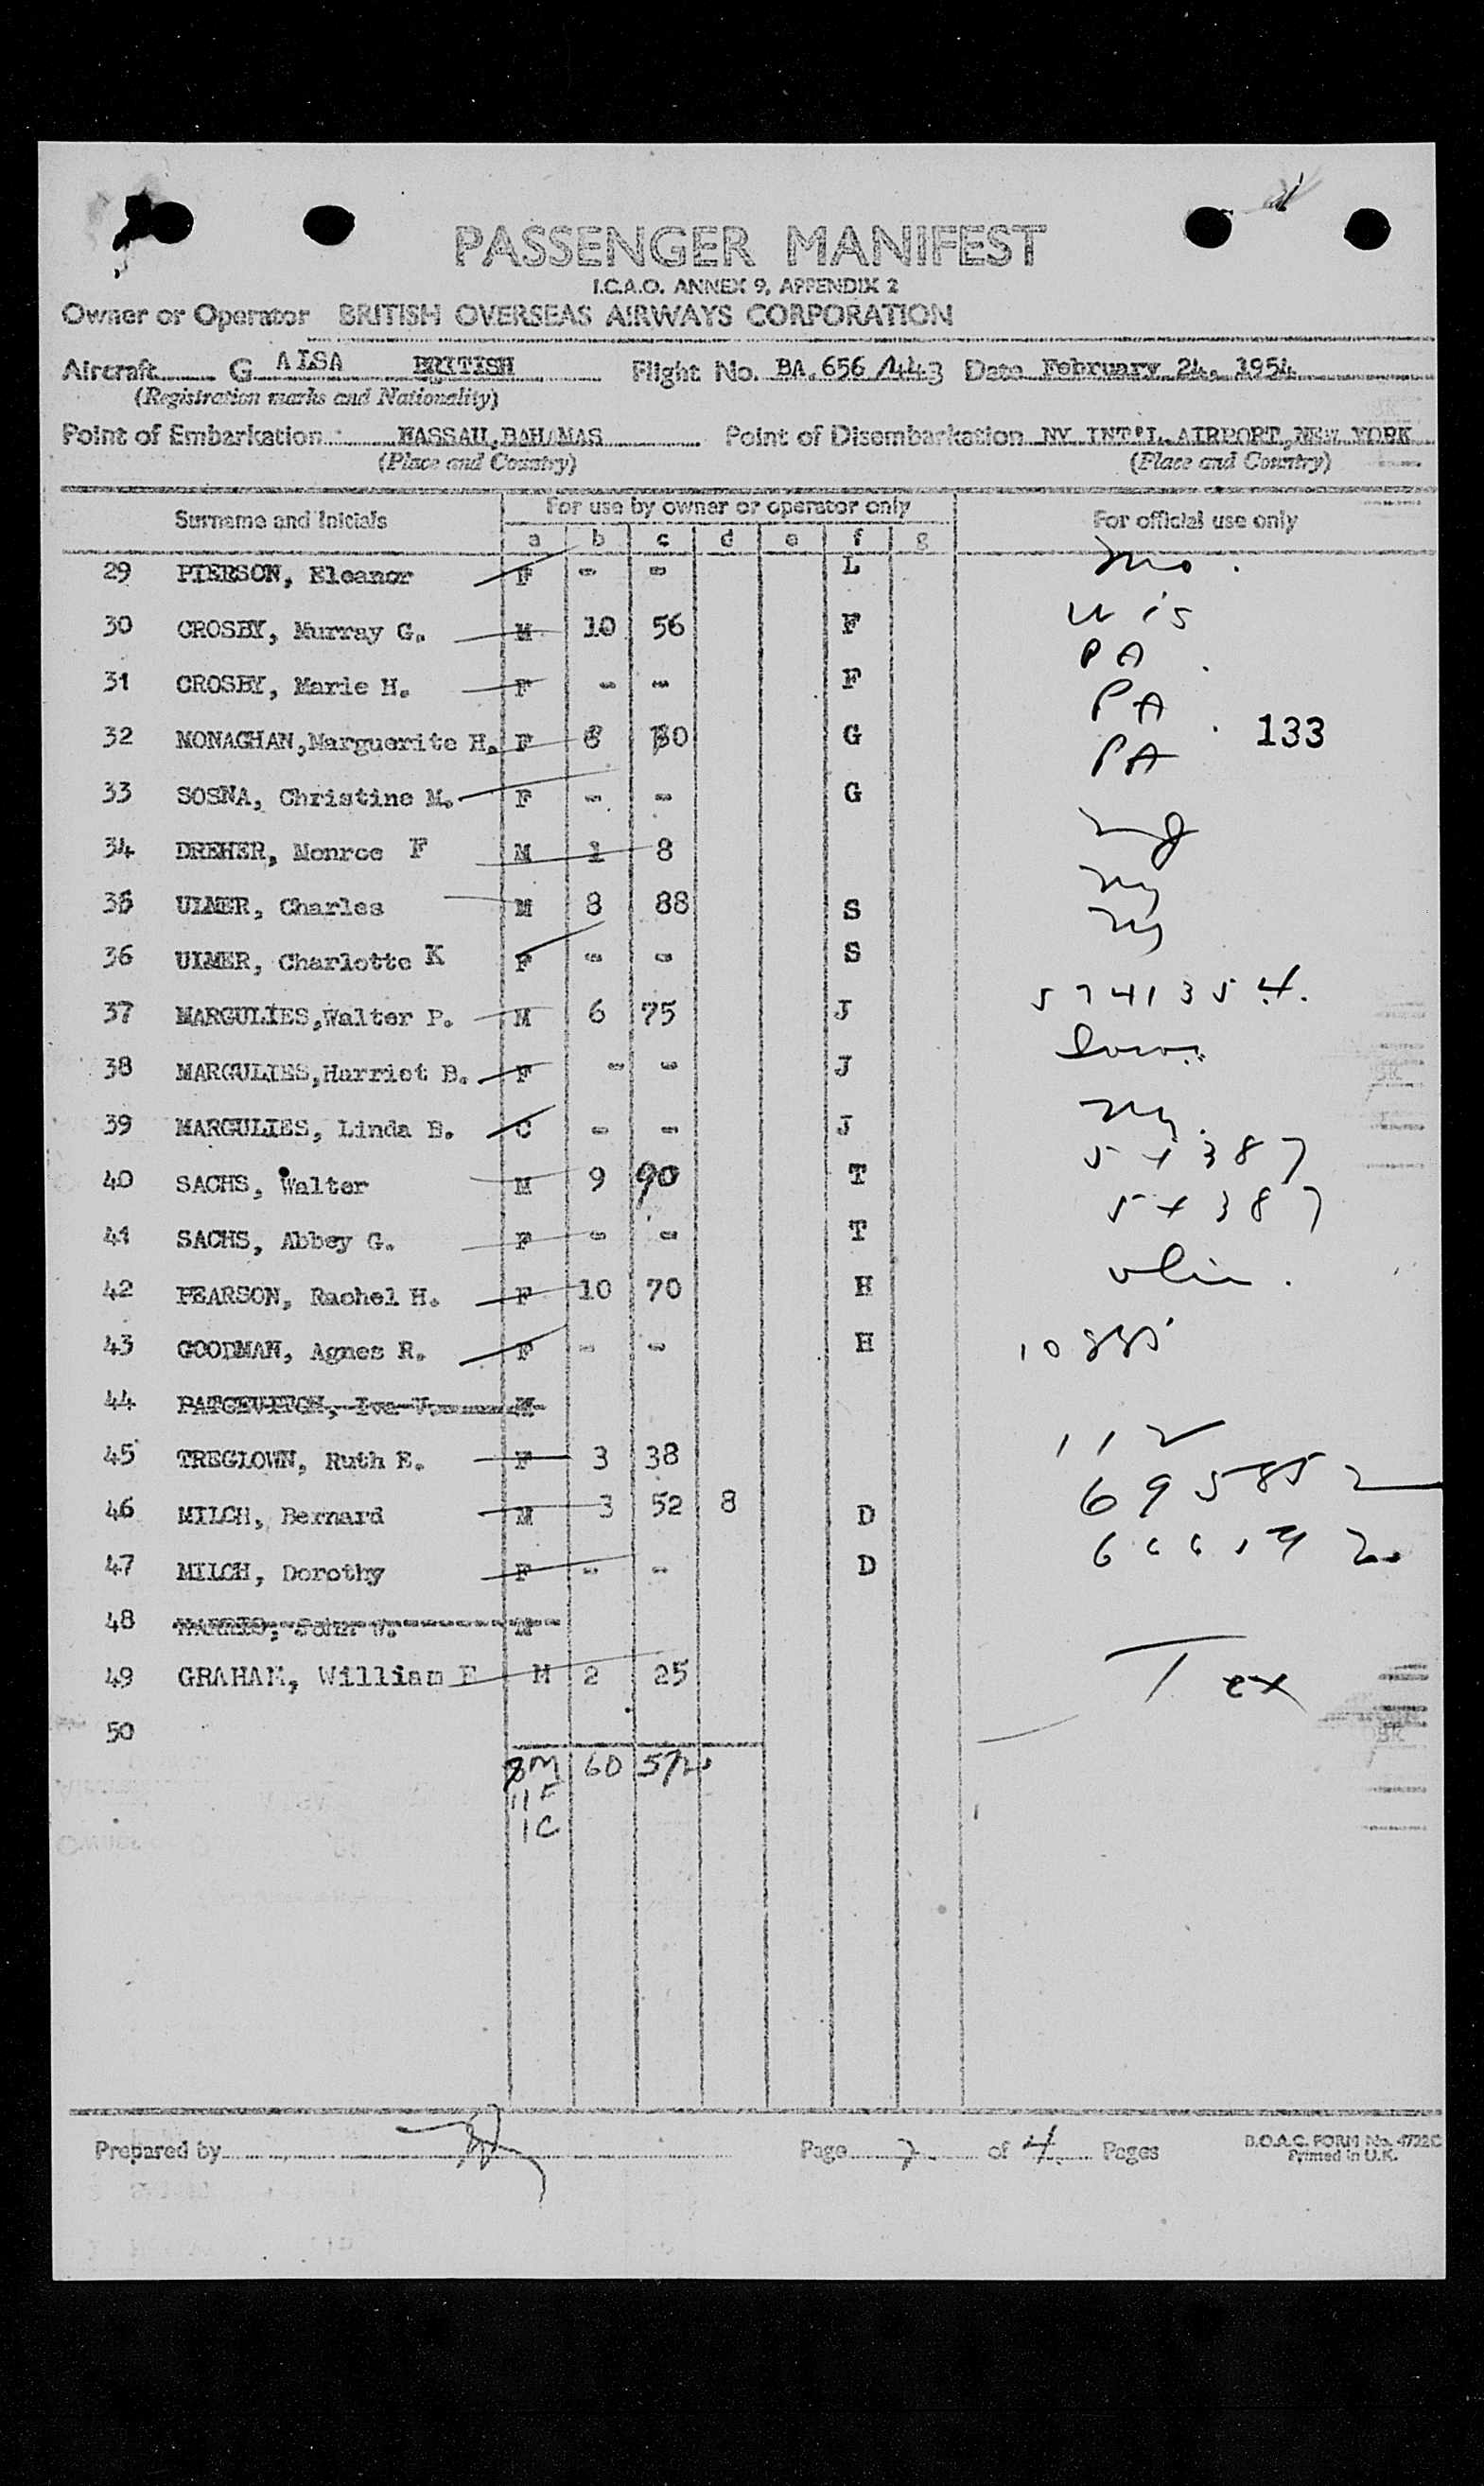 PASSENGER MANIFEST
I.C.A.O. ANNEX 9, APPENDIX 2
Owner or Operator BRITISH OVERSEAS AIRWAYS CORPORATION
Aircraft G ALSA BRITISH Flight No. BA.656/443 Date February 24, 1954
(Registration marks and Nationality)
Point of Embarkation NASSAU, BAHAMAS Point of Disembarkation NY INT'L. AIRPORT, NEW YORK
(Place and Country) (Place and Country)
Surname and Initials For use by owner or operator only For official use only
a b c d e f g
29 PIERSON, Eleanor F - - L Mo.
30 CROSBY, Murray G. M 10 56 F Wis
PA
31 CROSBY, Marie H. F - - F PA
32 MONAGHAN, Marguerite H. F G 133
PA
33 SOSNA, Christine M. F - - G
34 DREHER, Monroe F M 1 8 NJ
35 ULMER, Charles M 8 88 S NY
36 ULMER, Charlotte K F - - S NY
37 MARGULIES, Walter P. M 6 75 J 5741354.
38 MARGULIES, Harriet B. F - - J Iowa
39 MARGULIES, Linda B. C - - J NY.
40 SACHS, Walter M 9 90 T 5+387
41 SACHS, Abbey G. F - - T 5+387
42 PEARSON, Rachel H. F 10 70 H
43 GOODMAN, Agnes R. F - - H
44 PATCEVITCH, Iva V. M
45 TREGLOWN, Ruth E. F 3 38 112
46 MILCH, Bernard M 3 52 8 D 695852
47 MILCH, Dorothy F - - D
48 John W. M
49 GRAHAM, William E M 2 25 Tex
50
8M 60 572
11F
1C
Prepared by Page of 4 Pages B.O.A.C. FORM No. 4722C
Printed in U.K.